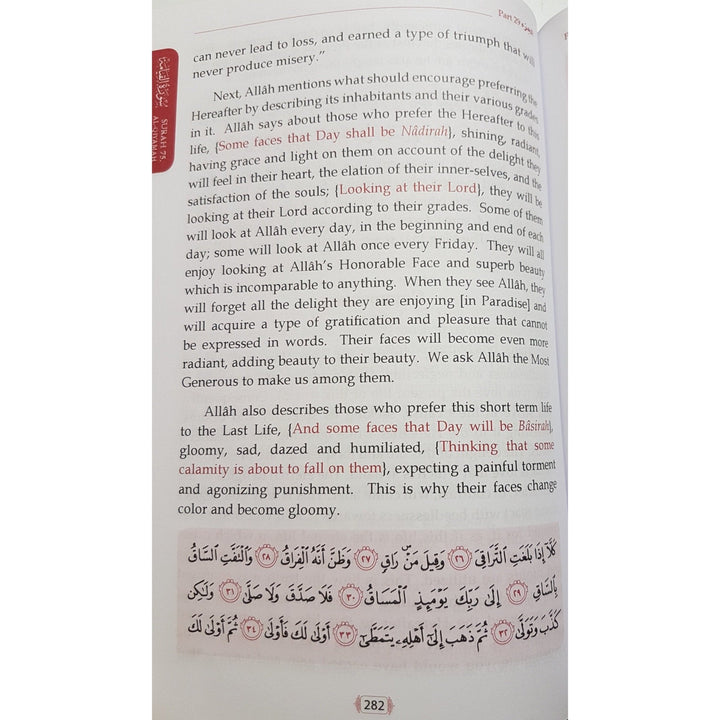 Part 29 الجزء
سُورَةُ القِيَامَة
SURAH 75.
AL-QIYAMAH
can never lead to loss, and earned a type of triumph that will
never produce misery.”
Next, Allâh mentions what should encourage preferring the
Hereafter by describing its inhabitants and their various grades
in it. Allâh says about those who prefer the Hereafter to this
life, {Some faces that Day shall be Nâdirah}, shining, radiant,
having grace and light on them on account of the delight they
will feel in their heart, the elation of their inner-selves, and the
satisfaction of the souls; {Looking at their Lord}, they will be
looking at their Lord according to their grades. Some of them
will look at Allâh every day, in the beginning and end of each
day; some will look at Allâh once every Friday. They will all
enjoy looking at Allâh’s Honorable Face and superb beauty
which is incomparable to anything. When they see Allâh, they
will forget all the delight they are enjoying [in Paradise] and
will acquire a type of gratification and pleasure that cannot
be expressed in words. Their faces will become even more
radiant, adding beauty to their beauty. We ask Allâh the Most
Generous to make us among them.
Allâh also describes those who prefer this short term life
to the Last Life, {And some faces that Day will be Bâsirah},
gloomy, sad, dazed and humiliated, {Thinking that some
calamity is about to fall on them}, expecting a painful torment
and agonizing punishment. This is why their faces change
color and become gloomy.
كَلَّآ إِذَا بَلَغَتِ التَّرَاقِيَ ٢٦ وَقِيلَ مَنْ رَاقٍ ٢٧ وَظَنَّ أَنَّهُ الْفِرَاقُ ٢٨ وَالْتَفَّتِ السَّاقُ
بِالسَّاقِ ٢٩ إِلَى رَبِّكَ يَوْمَئِذٍ الْمَسَاقُ ٣٠ فَلَا صَدَّقَ وَلَا صَلَّى ٣١ وَلَكِن
كَذَّبَ وَتَوَلَّى ٣٢ ثُمَّ ذَهَبَ إِلَى أَهْلِهِ يَتَمَطَّى ٣٣ أَوْلَى لَكَ فَأَوْلَى ٣٤ ثُمَّ أَوْلَى لَكَ
282